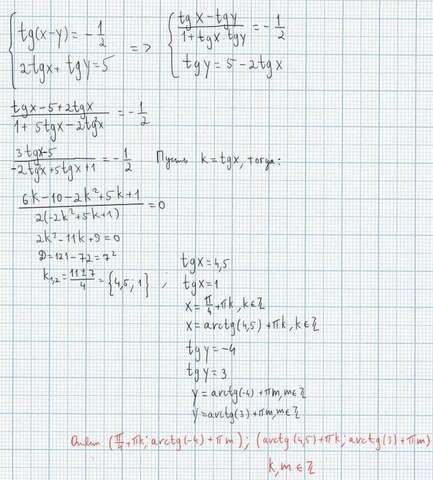 tg(x-y) = -1/2 => (tgx-tgy)/(1+tgx·tgy) = -1/2
2tgx+tgy=5    tgy = 5-2tgx
(tgx-5+2tgx)/(1+5tgx-2tg²x) = -1/2
(3tgx-5)/(-2tg²x+5tgx+1) = -1/2   Пусть k=tgx, тогда:
(6k-10-2k²+5k+1)/(2(-2k²+5k+1)) = 0
2k²-11k+9=0
D=121-72=7²
k₁,₂ = (11±7)/4 = {4,5; 1} ;
tgx=4,5
tgx=1
x=π/4+πk, k∈ℤ
x=arctg(4,5)+πk, k∈ℤ
tgy=-4
tgy=3
y=arctg(-4)+πm, m∈ℤ
y=arctg(3)+πm, m∈ℤ
Ответ (π/4+πk; arctg(-4)+πm); (arctg(4,5)+πk; arctg(3)+πm)
k, m ∈ ℤ